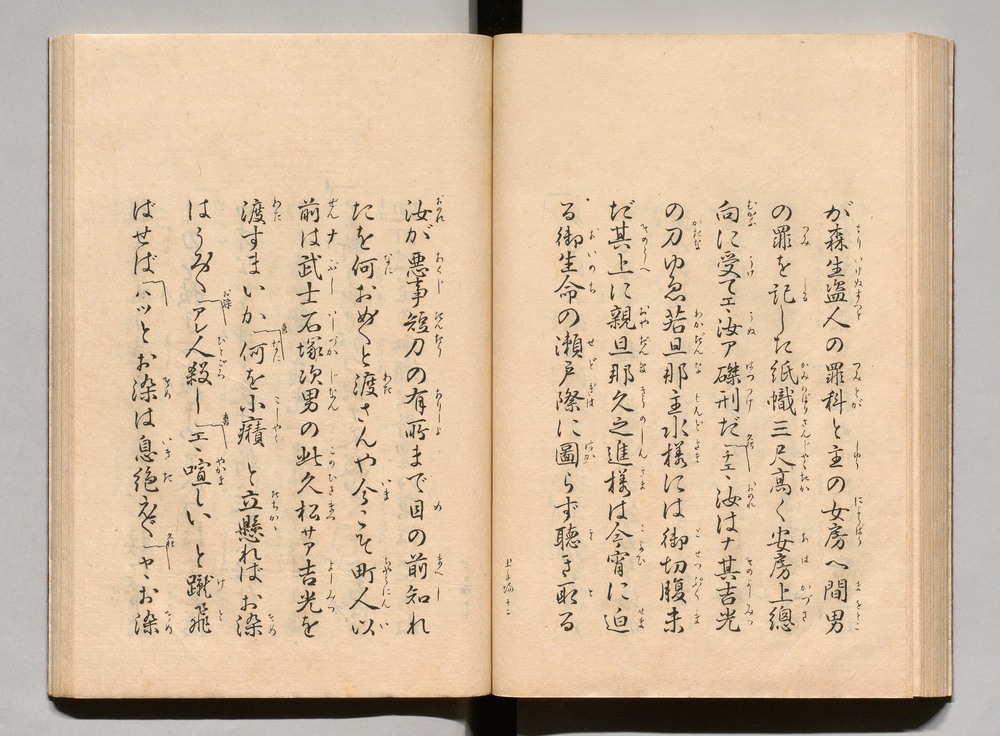 が森生盗人の罪科と主の女房へ間男
の罪を記した紙幟三尺高く安房上總
向に受てエヽ汝ア磔刑だチエヽ汝はナ其吉光
の刀ゆゑ若旦那主水様には御切腹未
だ其上に親旦那久之進様は今宵に迫
る御生命の瀬戸際に圖らず聴き取る
汝が悪事短刀の有所まで目の前知れ
たを何おめ〳〵と渡さんや今こそ町人以
前は武士石塚次男の此久松サア吉光を
渡すまいか何を小癪と立懸ればお染
はうろ〳〵アレ人殺しエヽ喧しいと蹴飛
ばせばハッとお染は息絶えだヤヽお染